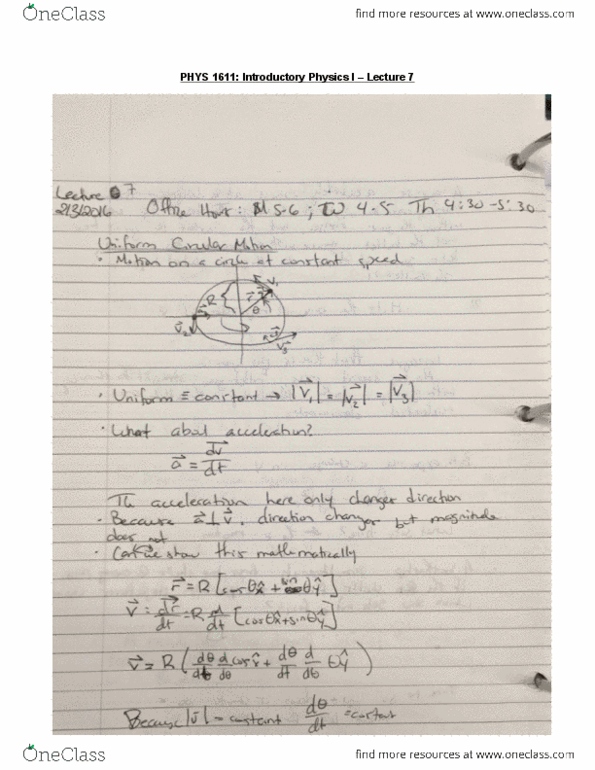 OneClass
find more resources at www.oneclass.com
PHYS 1611: Introductory Physics I – Lecture 7
Lecture 7
2/3/2016 Office Hour: M 5-6 ; W 4-5 Th 4:30-5:30
Uniform Circular Motion
• Motion on a circle at constant speed
R r⃗ θ v⃗₁
v⃗₂
v⃗₃
• Uniform ≡ constant → |v⃗₁| = |v⃗₂| = |v⃗₃|
• What about acceleration?
a⃗ = dv⃗/dt
Th acceleration here only changes direction
• Because a⃗ ⊥ v⃗, direction changes but magnitude
does not
• Can we show this mathematically
r⃗ = R[cosθx̂ + sinθŷ]
v⃗ = dr⃗/dt = R d/dt [cosθx̂ + sinθŷ]
v⃗ = R(dθ/dt d/dθ cosx̂ + dθ/dt d/dθ θŷ)
Because |v⃗| = constant dθ/dt = constant
OneClass
find more resources at www.oneclass.com